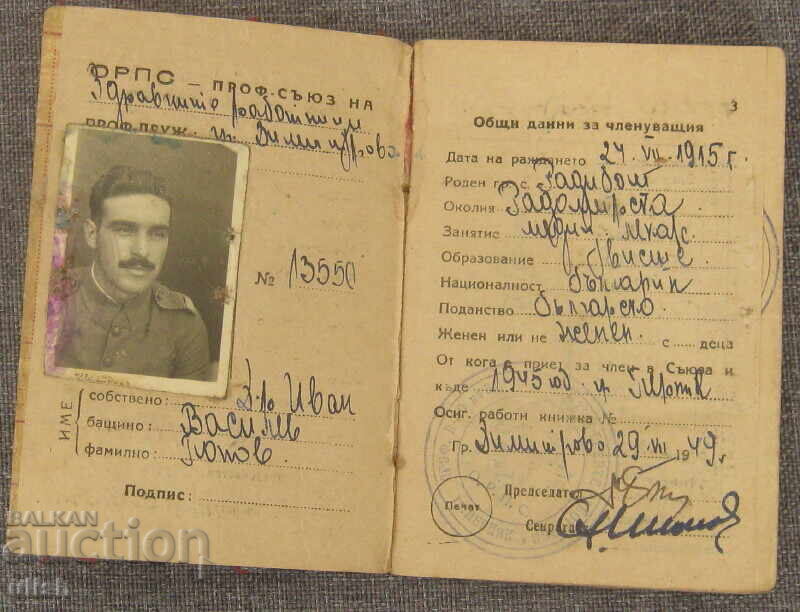 ОРПС – ПРОФ. СЪЮЗ НА
Здравните работници
ПРОФ. ДРУЖ. гр. Димитрово
№ 13550
ИМЕ
собствено: Д-р Иван
бащино: Василев
фамилно:
Подпис:
3
Общи данни за членуващия
Дата на раждането 27 VII 1915 г.
Роден гр. с.
Околия
Занятие медиц. лекар
Образование висше
Националност българин
Поданство българско
Женен или не женен с деца
От кога е приет за член в Съюза и
къде 1945 год. гр.
Осиг. работи книжка №
Гр. Димитрово 29 III 1949 г.
Председател
Печат
Секретар
BALKAN
auction